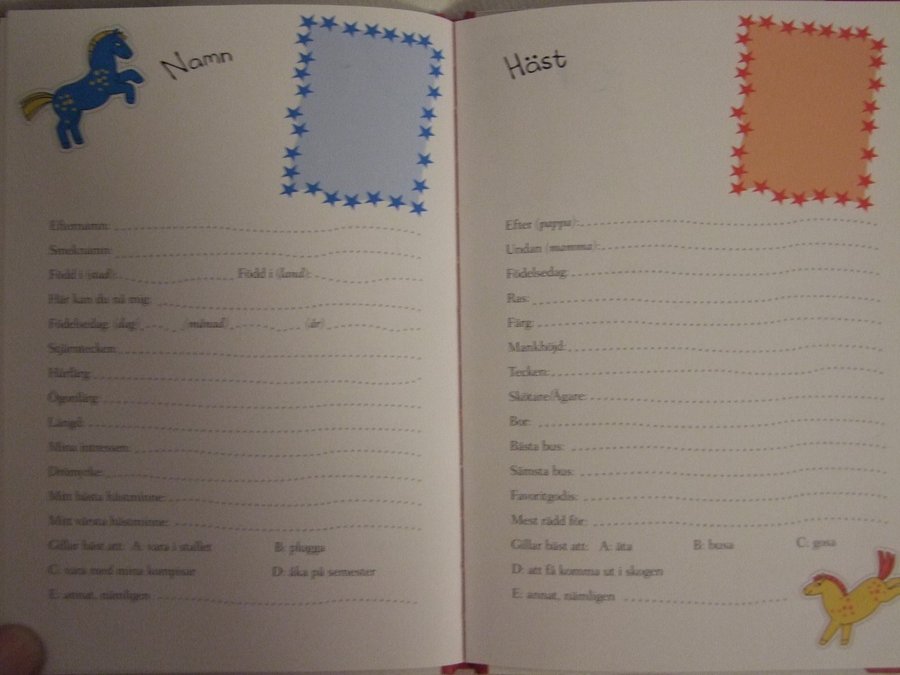 Namn
Efternamn:
Smeknamn:
Född i (stad): Född i (land):
Här kan du nå mig:
Födelsedag: (dag) (månad) (år)
Stjärntecken:
Hårfärg:
Ögonfärg:
Längd:
Mina intressen:
Drömyrke:
Mitt bästa hästminne:
Mitt värsta hästminne:
Gillar bäst att: A: vara i stallet B: plugga
C: vara med mina kompisar D: åka på semester
E: annat, nämligen
Häst
Efter (pappa):
Undan (mamma):
Födelsedag:
Ras:
Färg:
Mankhöjd:
Tecken:
Skötare/Ägare:
Bor:
Bästa bus:
Sämsta bus:
Favoritgodis:
Mest rädd för:
Gillar bäst att: A: äta B: busa C: gosa
D: att få komma ut i skogen
E: annat, nämligen